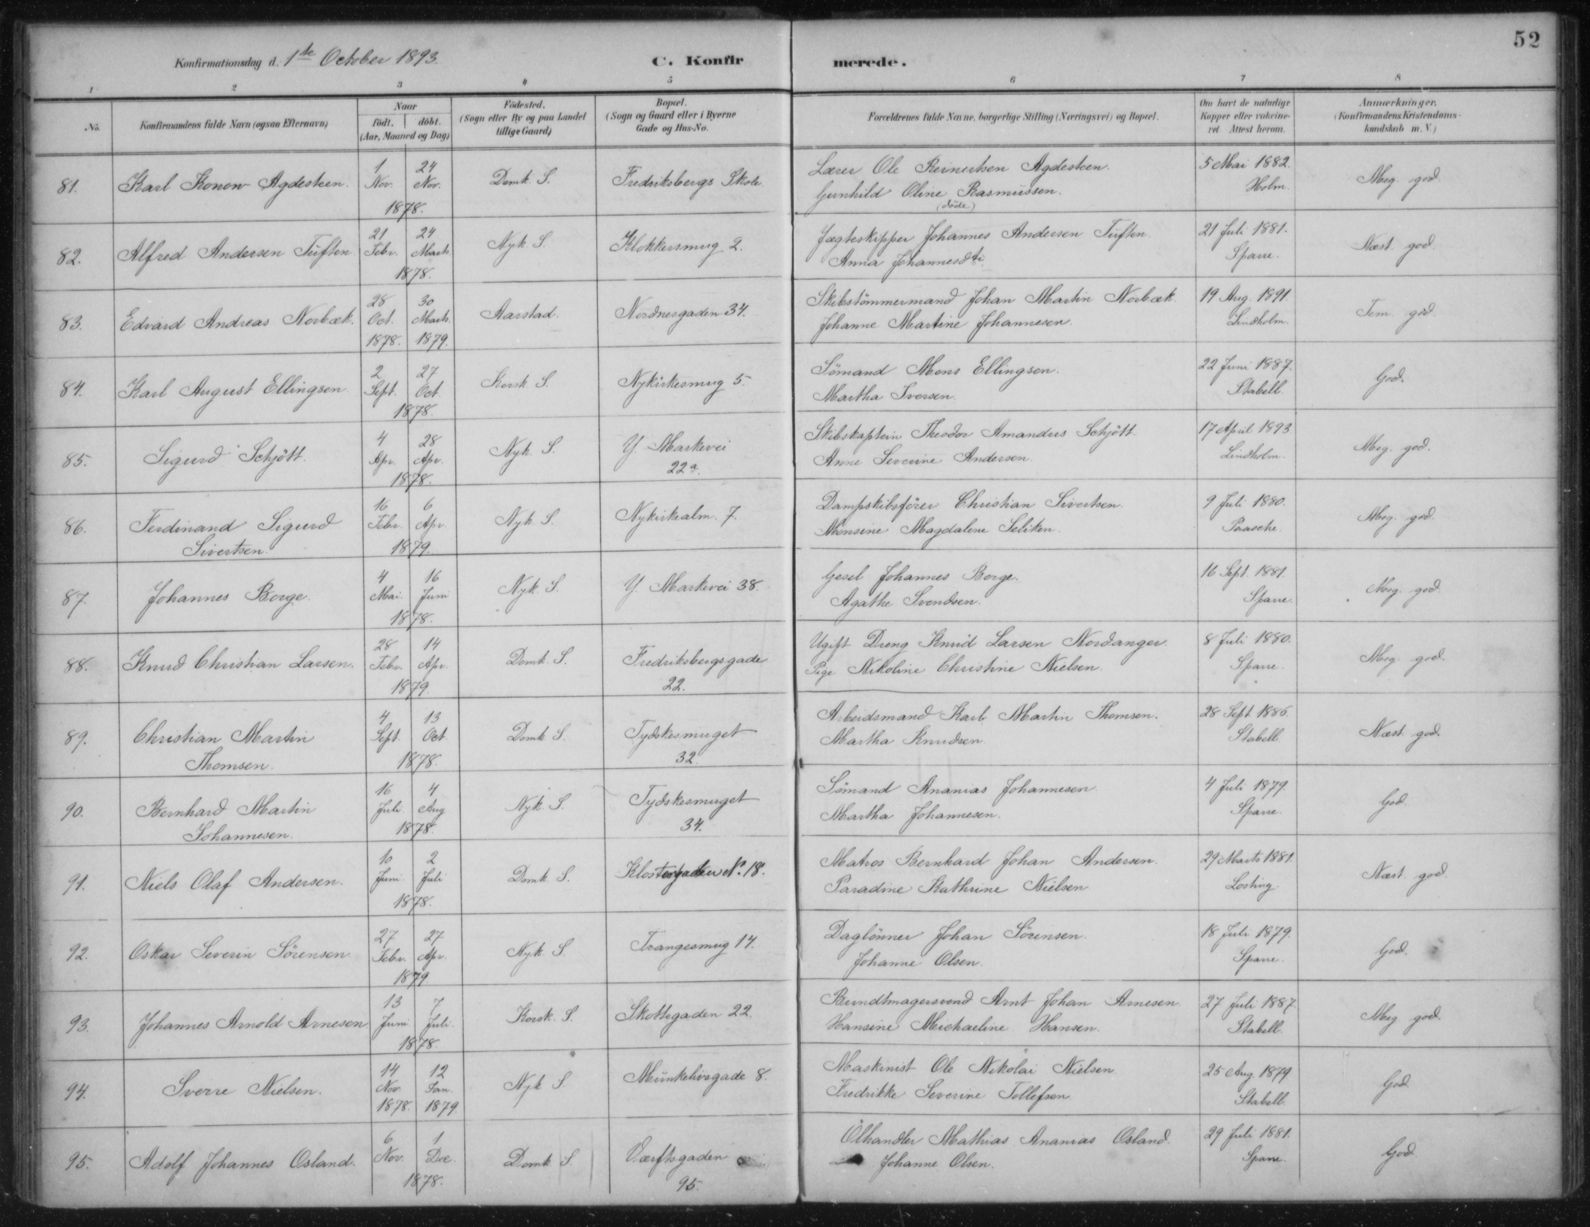 52
Konfirmationsdag d. 1ste October 1893.
C. Konfirmerede.
1 2 3 4 5 6 7 8
No. Konfirmandens fulde Navn (ogsaa Efternavn) Naar født. døbt. (Aar, Maaned og Dag) Fødested. (Sogn eller By og paa Landet tillige Gaard) Bopæl. (Sogn og Gaard eller i Byerne Gade og Hus-No. Forældrenes fulde Navne, borgerlige Stilling (Næringsvei) og Bopæl. Om havt de naturlige Kopper eller vaccineret. Attest herom. Anmærkninger. (Konfirmandens Kristendomskundskab m. V.)
81. Karl Konow Agdesteen. 1 Nov. 24 Nov. 1878. Domk S. Fredriksbergs Skole Lærer Ole Reinertsen Agdesteen. Gunhild Oline Rasmussen. (døde) 5 Mai 1882. Holm. Meg. god.
82. Alfred Andersen Tuften 21 Febr. 24 Marts 1878. Nyk S. Klokkersmug 2. Jægteskipper Johannes Andersen Tuften Anna Johannesdtr. 21 Juli 1881. Sparre. Næst god.
83. Edvard Andreas Norbæk. 28 Oct. 1878. 30 Marts 1879. Aarstad. Nordnesgaden 34. Skibstömmermand Johan Martin Norbæk Johanne Martine Johannesen. 19 Aug. 1891. Lindholm. Tem. god.
84. Karl August Ellingsen 2 Sept. 27 Oct. 1878. Korsk S. Nykirkesmug 5. Sömand Mons Ellingsen. Martha Iversen. 22 Juni 1887. Stabell. God.
85. Sigurd Schjött. 4 Apr. 28 Apr. 1878. Nyk S. Y. Markevei 22a. Skibskaptein Theodor Amandus Schjött. Anne Severine Andersen. 17 April 1893 Lindholm. Meg. god.
86. Ferdinand Sigurd Sivertsen. 16 Febr. 6 Apr. 1879. Nyk S. Nykirkealm. 7. Dampskibsförer Christian Sivertsen. Monsine Magdalene Seliken. 9 Juli 1880. Paasche. Meg. god.
87. Johannes Borge. 4 Mai. 16 Juni 1878. Nyk S. Y. Markevei 38. Gesel Johannes Borge. Agathe Svendsen. 16 Sept. 1881. Sparre. Meg. god.
88. Knud Christian Larsen. 28 Febr. 14 Apr. 1879 Domk S. Fredriksbergsgade 22. Ugift Dreng Knud Larsen Nordanger Pige Nikoline Christine Nielsen. 8 Juli 1880. Sparre. Meg. god.
89. Christian Martin Thomsen. 4 Sept. 13 Oct 1878. Domk S. Tydskesmuget 32. Arbeidsmand Karl Martin Thomsen. Martha Knudsen. 28 Sept. 1885. Stabell. Næst god.
90. Bernhard Martin Johannesen. 16 Juli 4 Aug 1878. Nyk S. Tydskesmuget 34. Sömand Ananias Johannesen. Martha Johannesen. 4 Juli 1879. Sparre. God.
91. Niels Olaf Andersen. 10 Juni 2 Juli 1878. Domk S. Klostergaden No. 18. Matros Bernhard Johan Andersen. Paradine Kathrine Nielsen 29 Marts 1881. Losting. Næst god.
92. Oskar Severin Sörensen 27 Febr. 27 Apr. 1879 Nyk S. Trangesmug 14. Daglönner Johan Sörensen. Johanne Olsen. 18 Juli 1879. Sparre. God.
93. Johannes Arnold Arnesen 13 Juni 7 Juli 1878. Korsk. S. Skottegaden 22. Bundtmagersvend Arnt Johan Arnesen Hansine Michaeline Hansen. 27 Juli 1887. Stabell. Meg god.
94. Sverre Nielsen. 14 Nov 1878. 12 Jan. 1879 Nyk S. Munkelivsgade 8. Maskinist Ole Nikolai Nielsen Fredrikke Severine Tollefsen 25 Aug 1879 Stabell. God
95. Adolf Johannes Osland. 6 Nov. 1 Dec. 1878. Domk S. Værftsgaden 95. Ölhandler Mathias Ananias Osland. Johanne Olsen. 29 Juli 1881. Sparre. God.